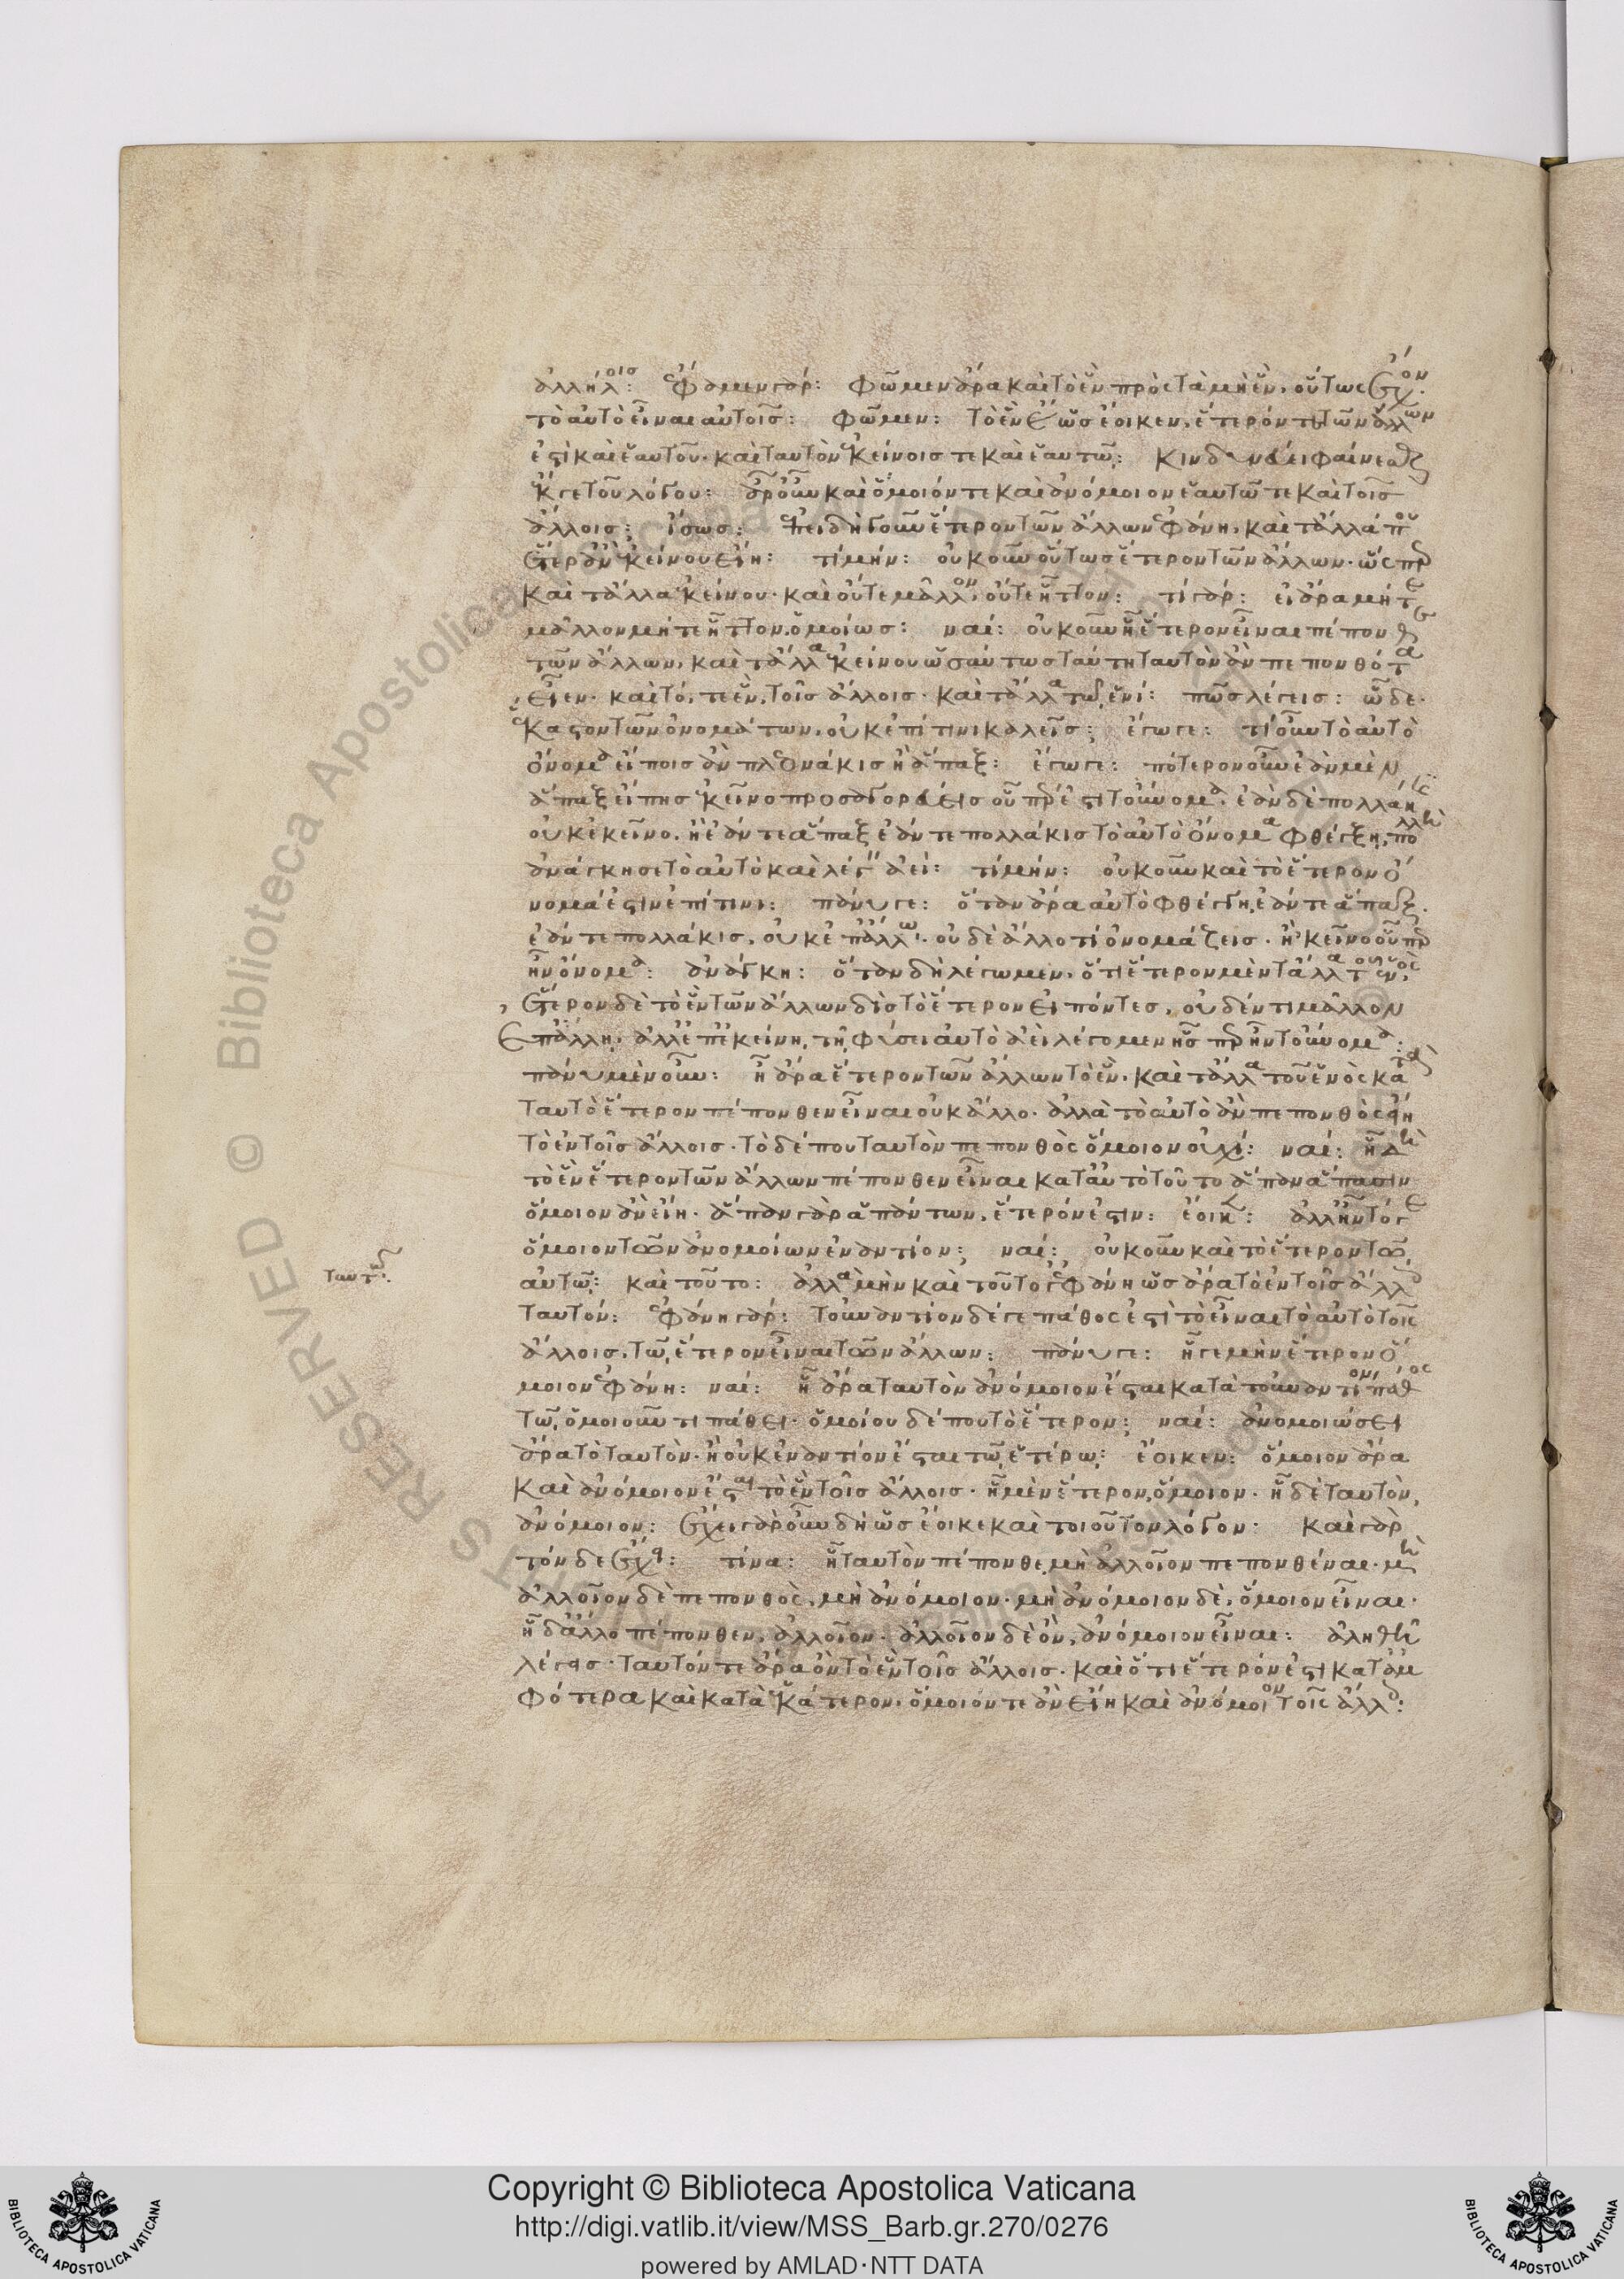 ἀλλήλοις: ἔφαμεν γάρ: φῶμεν ἄρα καὶ τὸ ἓν πρὸς τὰ μὴ ἓν, οὕτως ἔχον.
τὸ αὐτὸ εἶναι αὐτοῖς: φῶμεν: τὸ ἓν ἄρα ὡς ἔοικεν, ἕτερόν τε τῶν ἄλλων
ἐστὶ καὶ ἑαυτοῦ. καὶ ταυτὸν ἐκείνοις τε καὶ ἑαυτῶ: κινδυνεύει φαίνεσθαι
ἔκ γε τοῦ λόγου: ἆρ' οὖν καὶ ὅμοιόν τε καὶ ἀνόμοιον ἑαυτῶ τε καὶ τοῖς
ἄλλοις; ἴσως: ἐπειδὴ γοῦν ἕτερον τῶν ἄλλων ἐφάνη, καὶ τἄλλά που
ἕτερ' ἂν ἐκείνου εἴη: τί μήν: οὐκοῦν οὕτως ἕτερον τῶν ἄλλων. ὥσπερ
καὶ τἄλλα ἐκείνου. καὶ οὔτε μᾶλλον, οὔτε ἧττον: τί γάρ: εἰ ἄρα μήτε
μᾶλλον μήτε ἧττον. ὁμοίως: ναί: οὐκοῦν ἧ ἕτερον εἶναι πέπονθε
τῶν ἄλλων, καὶ τἄλλα ἐκείνου ὡσαύτως ταύτη ταυτὸν ἂν πεπονθότα
εἶεν. καὶ τό, τε ἓν, τοῖς ἄλλοις. καὶ τἄλλα τῶ ἑνί: πῶς λέγεις: ὧδε.
ἕκαστον τῶν ὀνομάτων, οὐκ ἐπί τινι καλεῖς; ἔγωγε: τί οὖν τὸ αὐτὸ
ὄνομα εἴποις ἂν πλεονάκις ἢ ἅπαξ: ἔγωγε: πότερον οὖν ἐὰν μὲν
ἅπαξ εἴπης ἐκεῖνο προσαγορεύεις οὗπέρ ἐστι τοὔνομα. ἐὰν δὲ πολλάκις
οὐκ ἐκεῖνο. ἢ ἐάν τε ἅπαξ ἐάν τε πολλάκις τὸ αὐτὸ ὄνομα φθέγξη, πολλὴ
ἀνάγκη σε τὸ αὐτὸ καὶ λέγειν ἀεί: τί μήν: οὐκοῦν καὶ τὸ ἕτερον ὄ
νομά ἐστιν ἐπί τινι: πάνυ γε: ὅταν ἄρα αὐτὸ φθέγγη, ἐάν τε ἅπαξ.
ἐάν τε πολλάκις, οὐκ ἐπ' ἄλλω. οὐδὲ ἄλλο τί ὀνομάζεις. ἢ ἐκεῖνο οὗπερ
ἦν ὄνομα: ἀνάγκη: ὅταν δὴ λέγωμεν, ὅτι ἕτερον μὲν τἄλλα τοῦ ἑνὸς,
ἕτερον δὲ τὸ ἓν τῶν ἄλλων δὶς τὸ ἕτερον εἰπόντες, οὐδέν τι μᾶλλον
ἐπ' ἄλλη. ἀλλ' ἐπ' ἐκείνη τῆ φύσει αὐτὸ ἀεὶ λέγομεν ἧσπερ ἦν τοὔνομα:
πάνυ μὲν οὖν: ἧ ἄρα ἕτερον τῶν ἄλλων τὸ ἓν. καὶ τἄλλα τοῦ ἑνὸς κατὰ
ταυτὸ ἕτερον πέπονθεν εἶναι οὐκ ἄλλο. ἀλλὰ τὸ αὐτὸ ἂν πεπονθὸς εἴη
τὸ ἓν τοῖς ἄλλοις. τὸ δέ που ταυτὸν πεπονθὸς ὅμοιον οὐχί: ναί: ἧ δὴ
τὸ ἓν ἕτερον τῶν ἄλλων πέπονθεν εἶναι κατ' αὐτὸ τοῦτο ἅπαν ἅπασιν
ὅμοιον ἂν εἴη. ἅπαν γὰρ ἁπάντων, ἕτερόν ἐστιν: ἔοικεν: ἀλλὰ μὴν τό γε
ὅμοιον τῶ ἀνομοίω ἐναντίον; ναί: οὐκοῦν καὶ τὸ ἕτερον τῶ
ταυτῶ:
αὐτῶ: καὶ τοῦτο: ἀλλὰ μὴν καὶ τοῦτό γ' ἐφάνη ὡς ἄρα τὸ ἓν τοῖς ἄλλοις
ταυτόν: ἐφάνη γάρ: τοὐναντίον δέ γε πάθος ἐστὶ τὸ εἶναι τὸ αὐτὸ τοῖς
ἄλλοις, τῶ ἕτερον εἶναι τῶν ἄλλων: πάνυ γε: ἧ γε μὴν ἕτερον ὅ
μοιον ἐφάνη: ναί: ἧ ἄρα ταυτὸν ἀνόμοιον ἔσται κατὰ τοὐναντίον πάθος
τῶ ὁμοιοῦντι πάθει. ὡμοίου δέ που τὸ ἕτερον; ναί: ἀνομοιώσει
ἄρα τὸ ταυτὸν. ἢ οὐκ ἐναντίον ἔσται τῶ ἑτέρω: ἔοικεν: ὅμοιον ἄρα
καὶ ἀνόμοιον ἔσται τὸ ἓν τοῖς ἄλλοις. ἧ μὲν ἕτερον, ὅμοιον. ἧ δὲ ταυτὸν,
ἀνόμοιον: ἔχει γὰρ οὖν δὴ ὡς ἔοικε καὶ τοιοῦτον λόγον: καὶ γὰρ
τόνδε ἔχει: τίνα: ἧ ταυτὸν πέπονθε, μὴ ἀλλοῖον πεπονθέναι. μὴ
ἀλλοῖον δὲ πεπονθὸς, μὴ ἀνόμοιον. μὴ ἀνόμοιον δὲ, ὅμοιον εἶναι.
ἧ δ' ἄλλο πέπονθεν, ἀλλοῖον. ἀλλοῖον δὲ ὂν, ἀνόμοιον εἶναι: ἀληθῆ
λέγεις. ταυτόν τε ἄρα ὂν τὸ ἓν τοῖς ἄλλοις. καὶ ὅτι ἕτερόν ἐστι κατ' ἀμ
φότερα καὶ κατὰ ἑκάτερον. ὅμοιόν τε ἂν εἴη καὶ ἀνόμοιον τοῖς ἄλλοις:
Copyright © Biblioteca Apostolica Vaticana
http://digi.vatlib.it/view/MSS_Barb.gr.270/0276
powered by AMLAD·NTT DATA
BIBLIOTECA APOSTOLICA VATICANA
BIBLIOTECA APOSTOLICA VATICANA